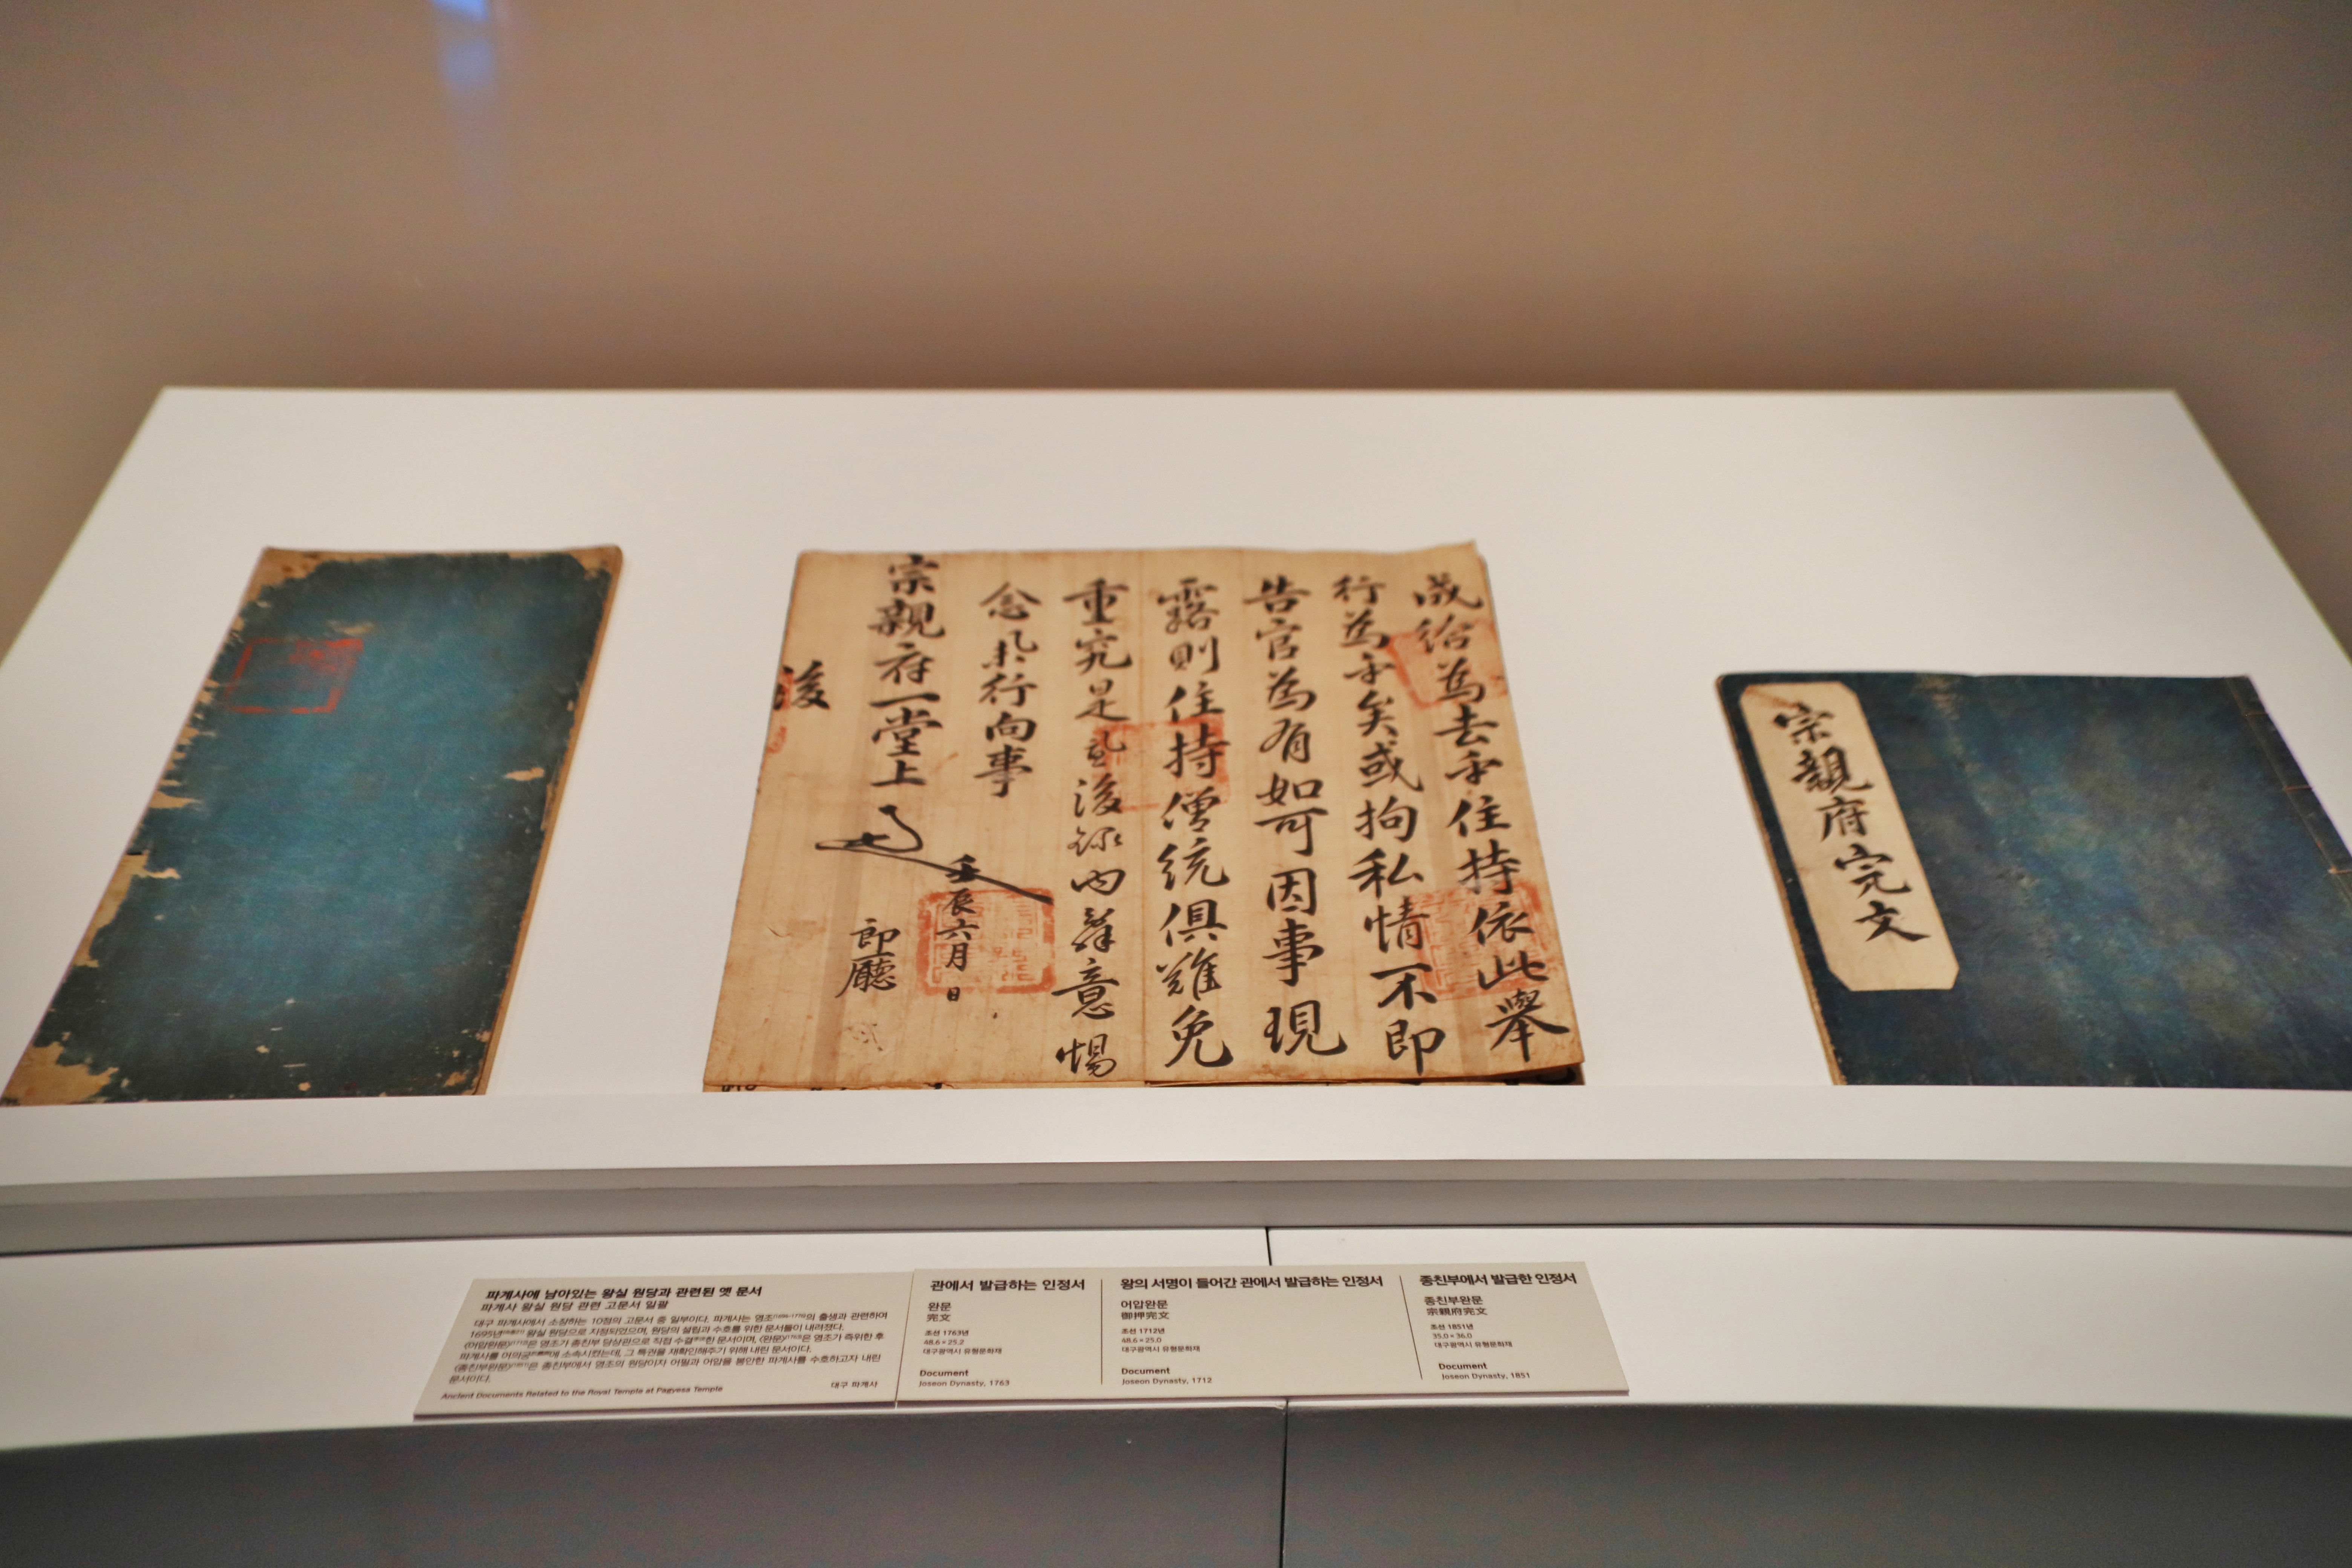 成給爲去乎住持依此擧
行爲乎矣或拘私情不即
告官爲有如可因事現
露則住持僧統俱難免
重究是乙後錄內辭意惕
念擧行向事
宗親府一堂上
壬辰六月 日
郎廳
後
宗親府完文
파계사에 남아있는 왕실 원당과 관련된 옛 문서
파계사 왕실 원당 관련 고문서 일괄
대구 파계사에서 소장하는 10점의 고문서 중 일부이다. 파계사는 영조의 출생과 관련하여
1695년 왕실 원당으로 지정되었으며, 원당의 설립과 수호를 위한 문서들이 내려졌다.
〈어압완문〉은 영조가 종친부 당상관으로 직접 수결한 문서이며, 〈완문〉은 영조가 즉위한 후
파계사를 어의궁에 소속시켰는데, 그 특권을 재확인해주기 위해 내린 문서이다.
〈종친부완문〉은 종친부에서 영조의 원당이자 어필과 어압을 봉안한 파계사를 수호하고자 내린
문서이다.
대구 파계사
Ancient Documents Related to the Royal Temple at Pagyesa Temple
관에서 발급하는 인정서
완문
完文
조선 1763년
48.6 × 25.2
대구광역시 유형문화재
Document
Joseon Dynasty, 1763
왕의 서명이 들어간 관에서 발급하는 인정서
어압완문
御押完文
조선 1712년
48.6 × 25.0
대구광역시 유형문화재
Document
Joseon Dynasty, 1712
종친부에서 발급한 인정서
종친부완문
宗親府完文
조선 1851년
35.0 × 36.0
대구광역시 유형문화재
Document
Joseon Dynasty, 1851